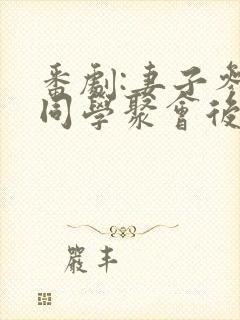 番劇:妻子參
同學聚會後
嚴丰